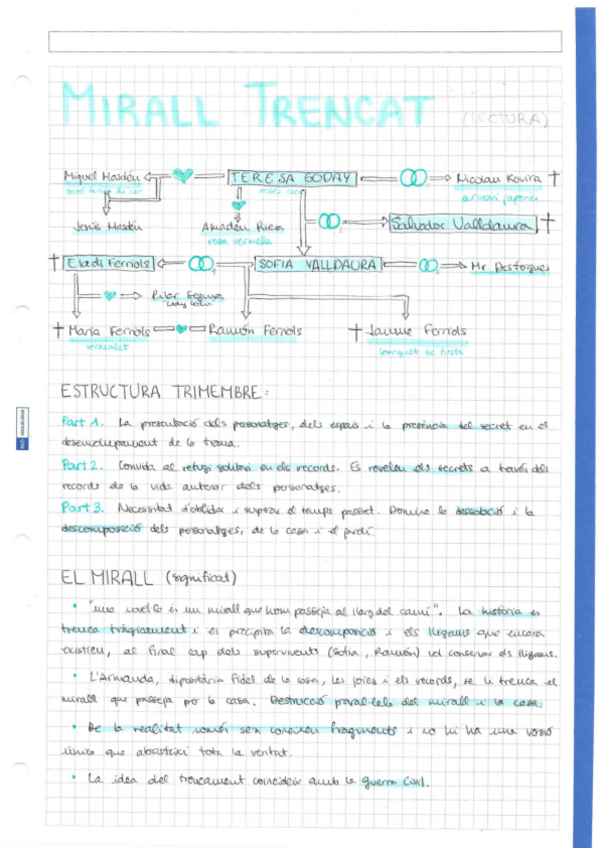 MIRALL TRENCAT (LECTURA)
Miquel Masdéu TERESA GODAY Nicolau Rovira
Jesús Masdéu Amadeu Riera Salvador Valldaura
rosa vermella
Eladi Ferriols SOFIA VALLDAURA Mr Desfargues
Pilar Segura
Lady Godiva
Maria Ferriols Ramón Ferriols Jaume Ferriols
ESTRUCTURA TRIMEMBRE:
Part 1. La presentació dels personatges, dels espais i la presència del secret en el
desenvolupament de la trama.
Part 2. Convida al refugi solitari en els records. Es revelen els secrets a través dels
records de la vida anterior dels personatges.
Part 3. Necessitat d'oblidar i superar el temps passat. Domina la desolació i la
descomposició dels personatges, de la casa i el jardí.
EL MIRALL (significat)
• "una novel·la és un mirall que hom passeja al llarg del camí". La història es
trenca tràgicament i es precipita la descomposició i els lligams que encara
existien, al final cap dels supervivents (Sofia, Ramón) vol conservar els lligams.
• L'Armanda, dipositària fidel de la casa, les joies i els records, se li trenca el
mirall que passeja per la casa. Destrucció paral·lela del mirall i la casa.
• De la realitat només se'n coneixen fragments i no hi ha una visió
única que abasteixi tota la veritat.
• La idea del trencament coincideix amb la guerra civil.